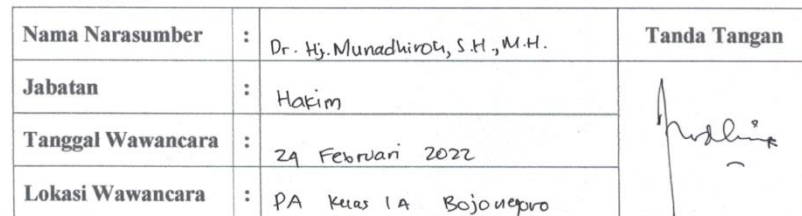 Nama Narasumber : Dr. Hj. Munadhiroh, S.H., M.H. Tanda Tangan
Jabatan : Hakim
Tanggal Wawancara : 24 Februari 2022
Lokasi Wawancara : PA Kelas 1A Bojonegoro